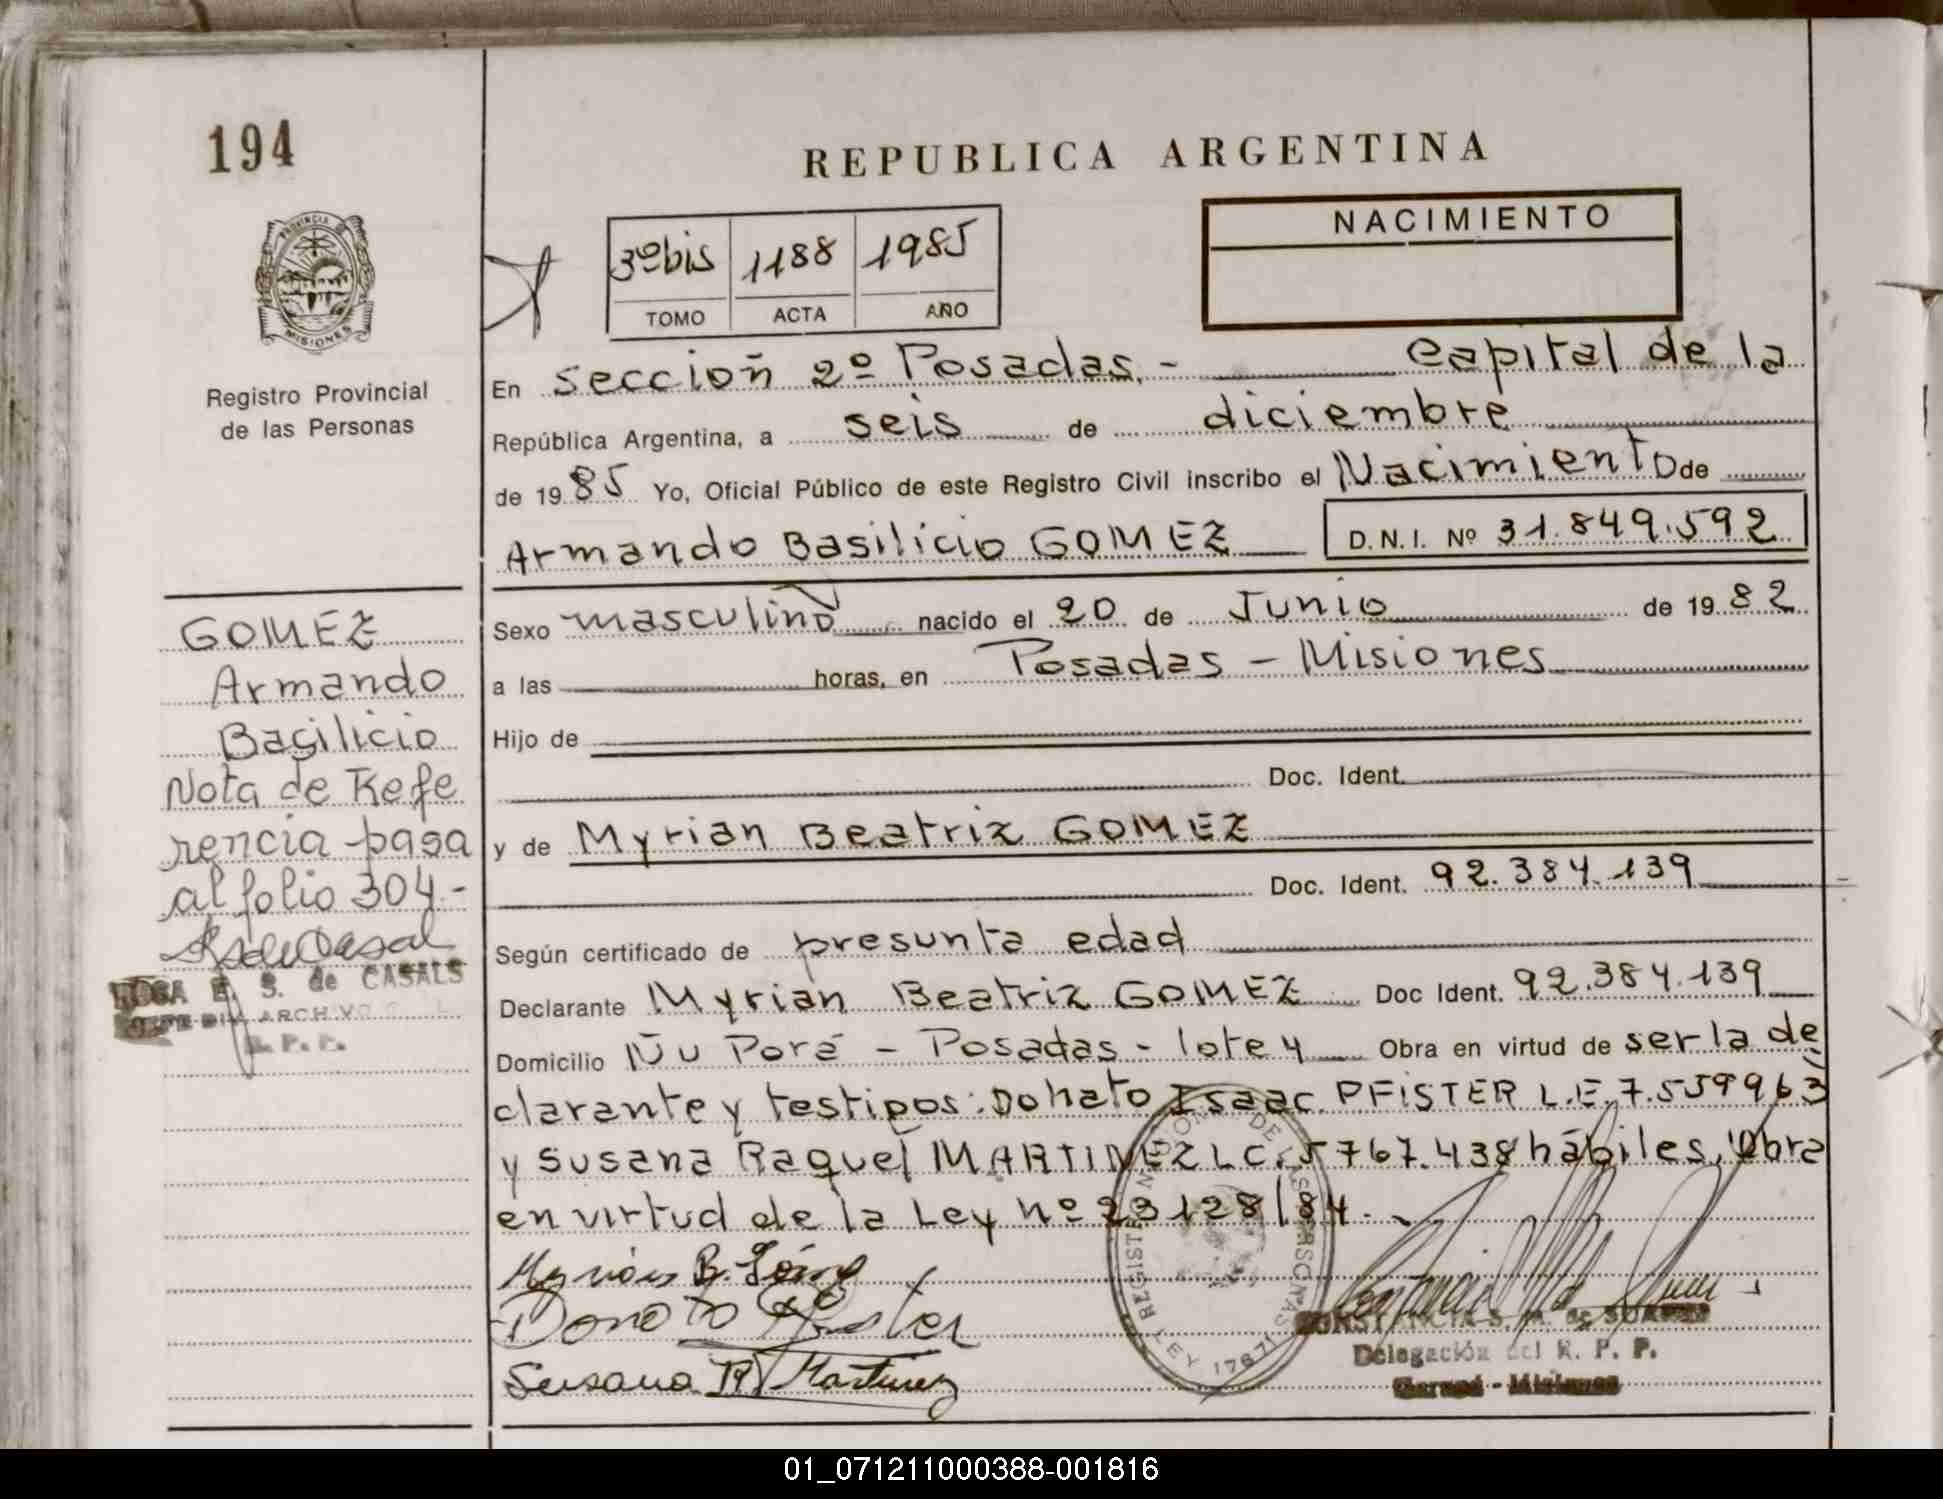 194
REPUBLICA ARGENTINA
PROVINCIA DE
MISIONES
Registro Provincial
de las Personas
3º bis 1188 1985
TOMO ACTA AÑO
NACIMIENTO
En Sección 2º Posadas.- capital de la
República Argentina, a seis de diciembre
de 1985 Yo, Oficial Público de este Registro Civil inscribo el Nacimiento de
Armando Basilicio GOMEZ D.N.I. Nº 31.849.592
Sexo masculino nacido el 20 de Junio de 1982
a las horas, en Posadas - Misiones
Hijo de
Doc. Ident.
y de Myrian Beatriz GOMEZ
Doc. Ident. 92.384.139
Según certificado de presunta edad
Declarante Myrian Beatriz GOMEZ Doc Ident. 92.384.139
Domicilio Ñu Porá - Posadas - lote 4 Obra en virtud de ser la de
clarante y testigos: Donato Isaac PFISTER L.E. 7.559963
y Susana Raquel MARTINEZ L.C. 5767.438 hábiles. Obra
en virtud de la Ley nº 23128/84.-
GOMEZ
Armando
Basilicio
Nota de Refe
rencia pasa
al folio 304.-
ROSA E. S. de CASALS
ARCHIVO
R. P. P.
Donato Pfister
Susana R Martinez
CONSTANCIA S. M. de SUAREZ
Delegación del R. P. P.
REGISTRO NACIONAL DE LAS PERSONAS
LEY 17671
01_071211000388-001816